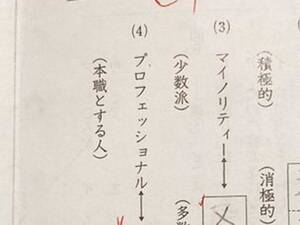 (積極的)
(消極的)
(3)
マイノリティー↔
(少数派)
(多数
(4)
プロフェッショナル↔
(本職とする人)